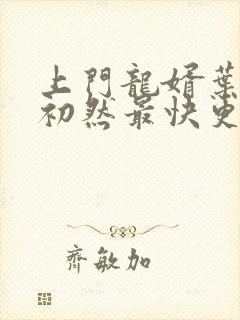 上門龍婿葉
初然最快更
齊敏加